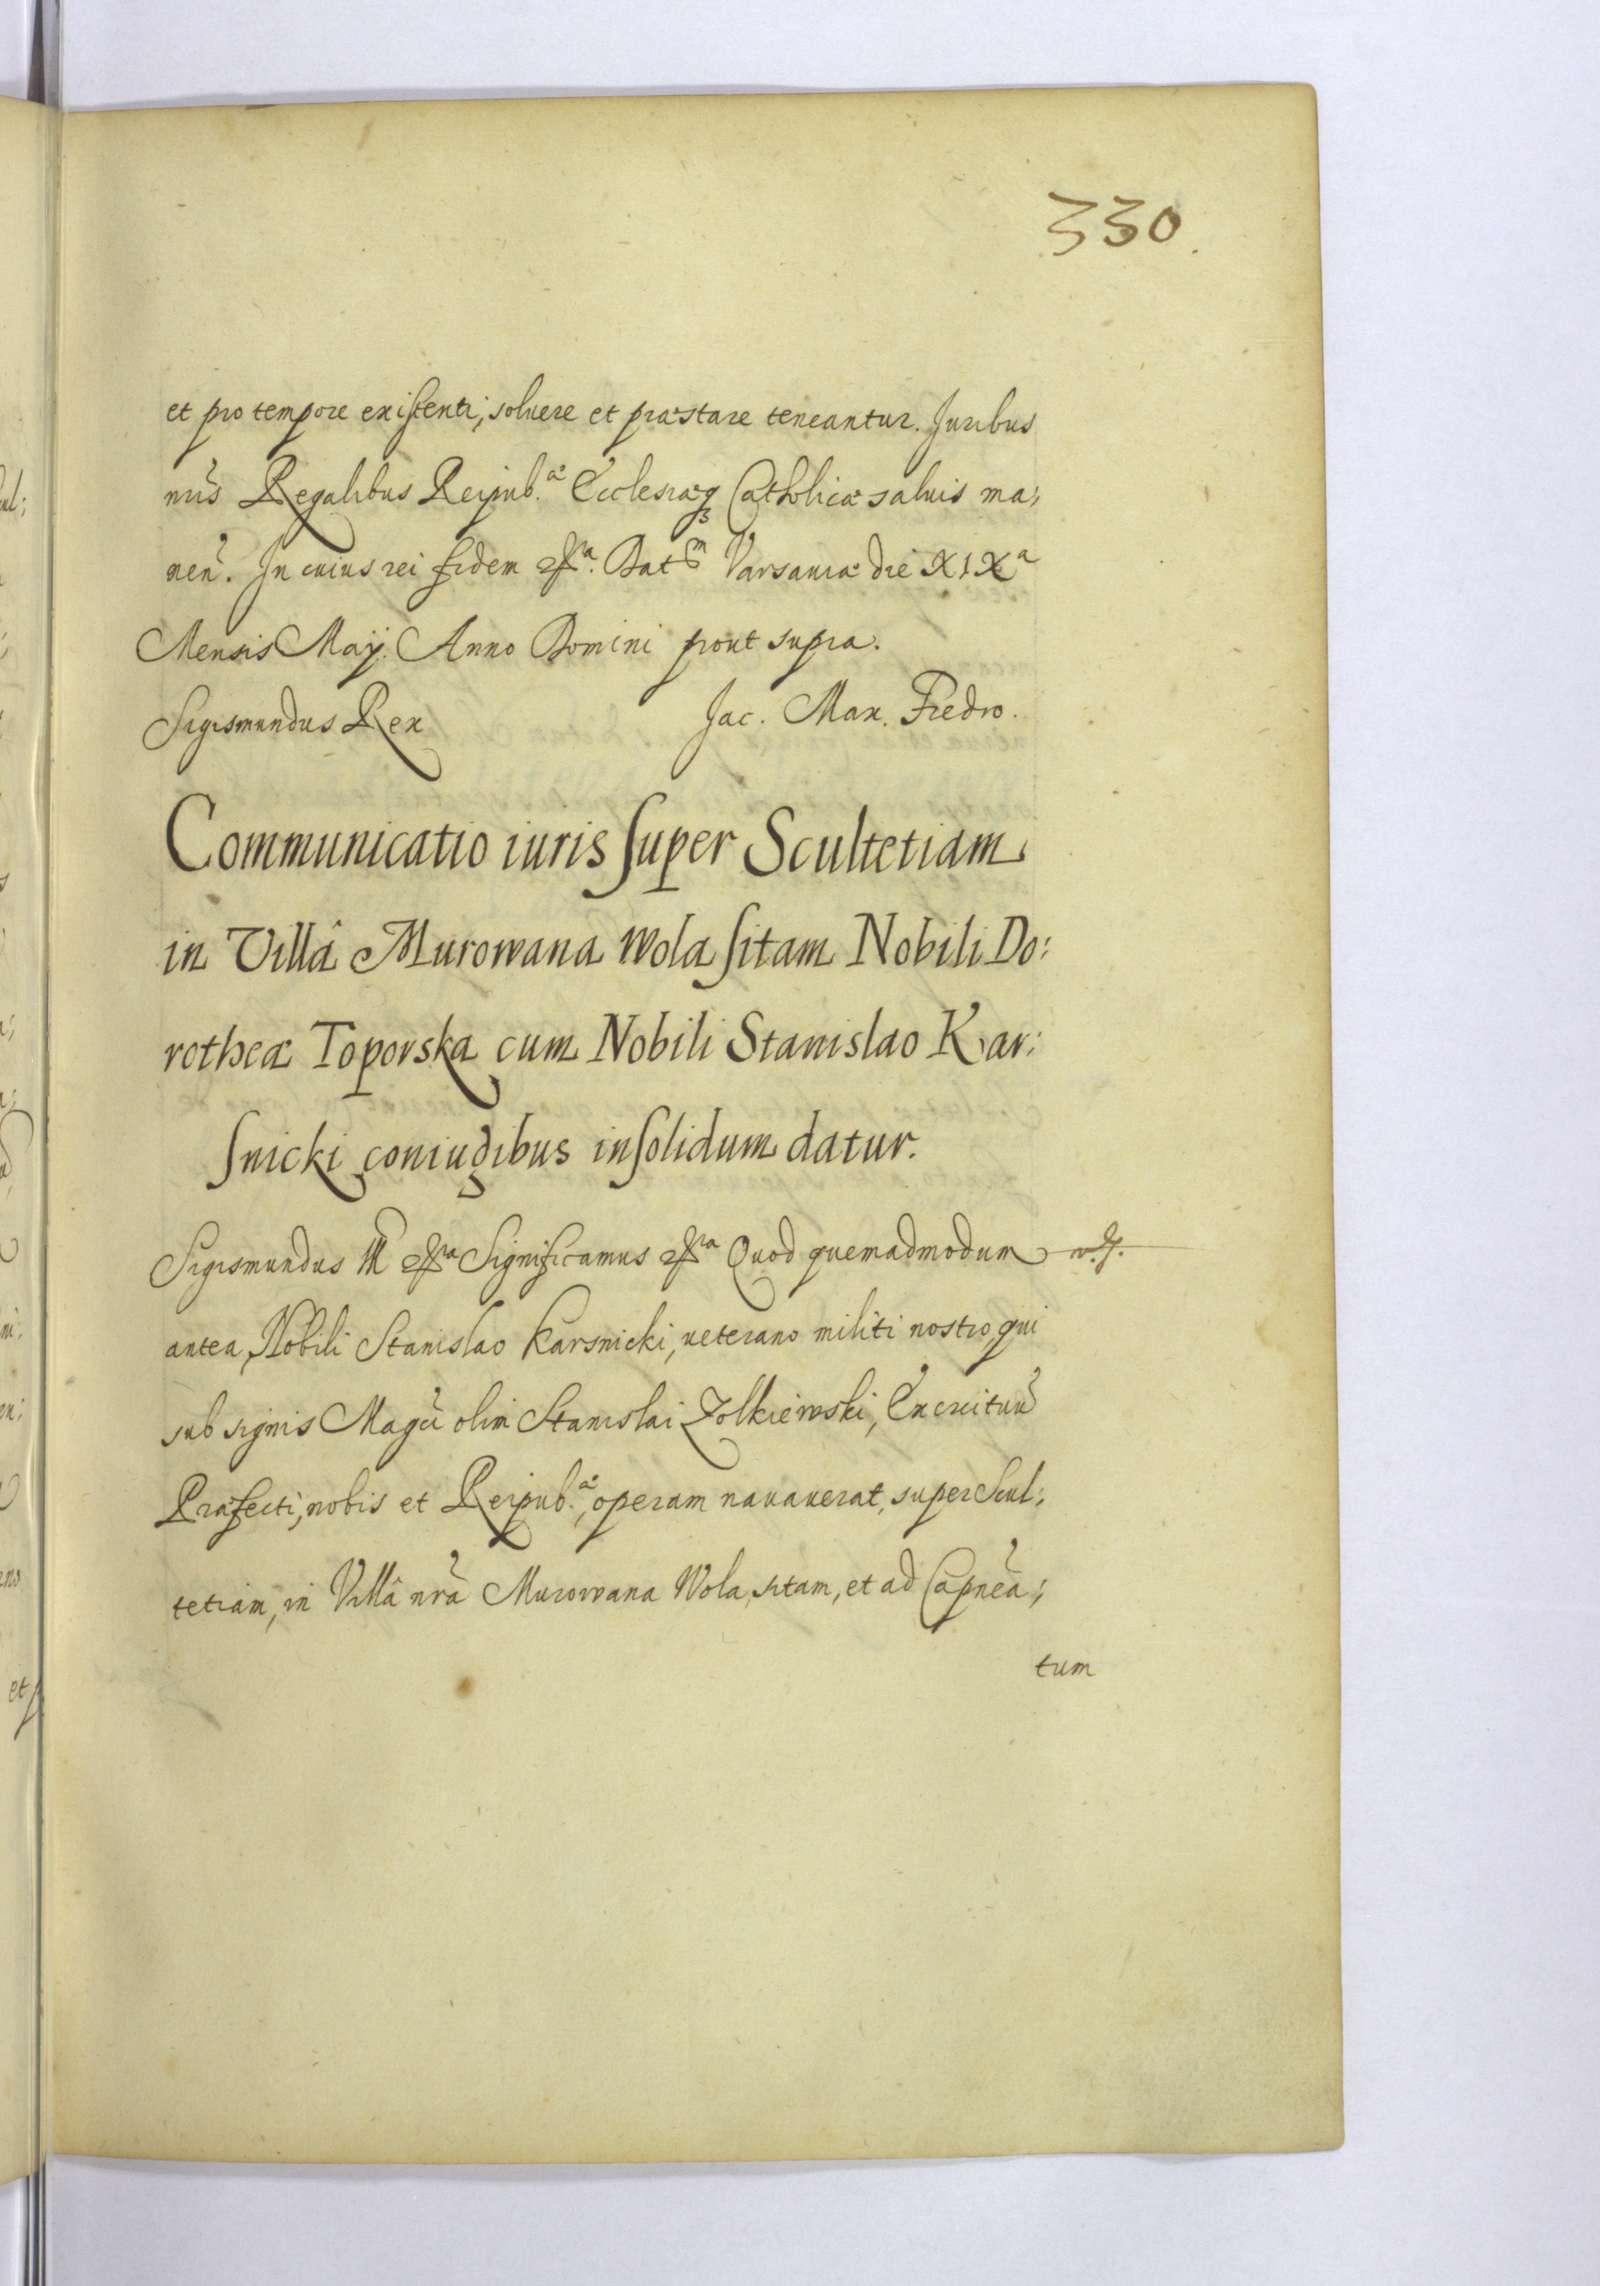 330.
et pro tempore existenti, soluere et præstare teneantur. Juribus
nr̃is Regalibus Reipub.æ Ecclesiæq3 Catholicæ saluis ma:
nen̉. In cuius rei fidem &ra. Datm Varsauiæ die XIXa
Mensis Maij. Anno Domini prout supra.
Sigismundus Rex Jac. Max. Fredro.
Communicatio iuris super Scultetiam
in Villâ Murowana Wola sitam Nobili Do:
rotheæ Toporska cum Nobili Stanislao Kar:
snicki coniugibus insolidum datur.
Sigismundus III &ra Significamus &ra Quod quemadmodum
antea Nobili Stanislao Karsnicki, ueterano militi nostro, qui
sub signis Magci olim Stanislai Zolkiewski, Exercituũ
Præfecti, nobis et Reipub.æ, operam nauauerat, super Scul:
tetiam, in Villâ nr̃a Murowana Wola, sitam, et ad Capnẽa:
tum